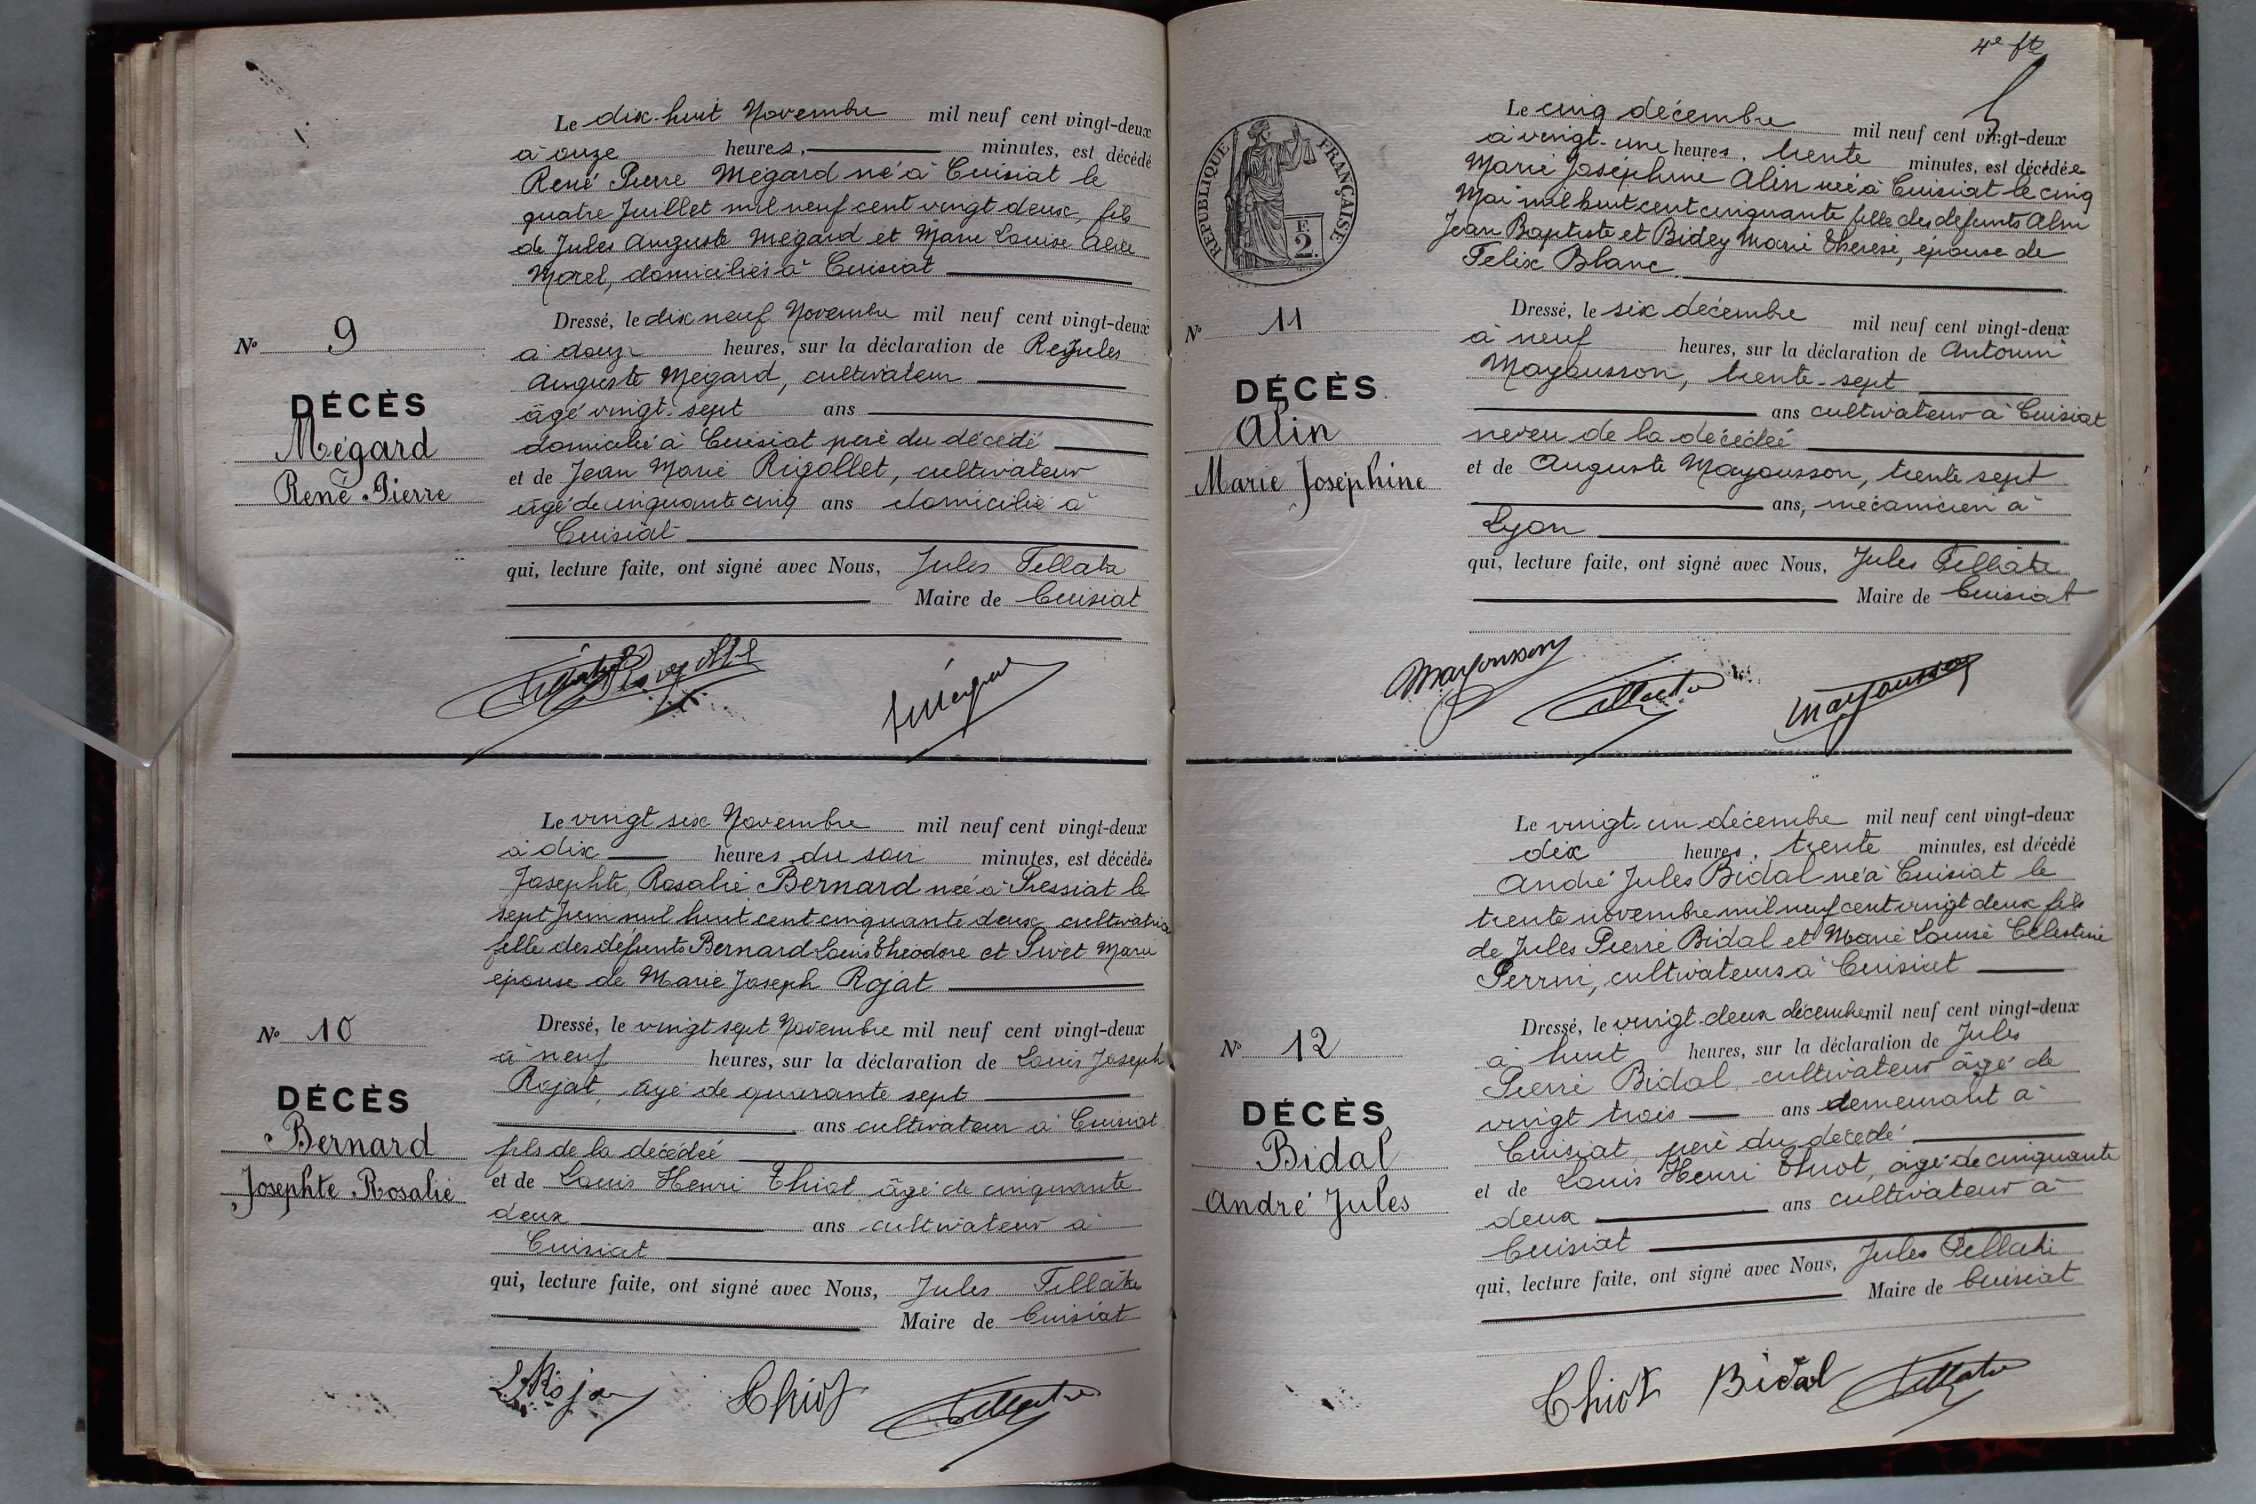 Le dix-huit Novembre mil neuf cent vingt-deux
à onze heures, minutes, est décédé
René Pierre Mégard né à Cuisiat le
quatre Juillet mil neuf cent vingt deux, fils
de Jules Auguste Mégard et Marie Louise Alice
Morel, domiciliés à Cuisiat
Nº 9
DÉCÈS
Mégard
René Pierre
Dressé, le dix neuf Novembre mil neuf cent vingt-deux
à douze heures, sur la déclaration de Jules
Auguste Mégard, cultivateur
âgé vingt-sept ans
domicilié à Cuisiat père du décédé
et de Jean Marie Rigollet, cultivateur
âgé de cinquante cinq ans domicilié à
Cuisiat
qui, lecture faite, ont signé avec Nous, Jules Tellate
Maire de Cuisiat
Le vingt six Novembre mil neuf cent vingt-deux
à dix heures du soir minutes, est décédée
Josephte, Rosalie Bernard née à Pressiat le
sept Juin mil huit cent cinquante deux cultivatrice
fille des défunts Bernard Louis Théodore et Pivet Marie
épouse de Marie Joseph Rojat
Nº 10
DÉCÈS
Bernard
Josephte Rosalie
Dressé, le vingt sept Novembre mil neuf cent vingt-deux
à neuf heures, sur la déclaration de Louis Joseph
Rojat, âgé de quarante sept
ans cultivateur à Cuisiat
fils de la décédée
et de Louis Henri Thiot âgé de cinquante
deux ans cultivateur à
Cuisiat
qui, lecture faite, ont signé avec Nous, Jules Tellate
Maire de Cuisiat
Thiot Tellate
4e ft
RÉPUBLIQUE FRANÇAISE
F.
2.
Le cinq décembre mil neuf cent vingt-deux
à vingt-une heures, trente minutes, est décédée
Marie Joséphine Alin née à Cuisiat le cinq
Mai mil huit cent cinquante fille des défunts Alin
Jean Baptiste et Bidey Marie Thérèse, épouse de
Félix Blanc
Nº 11
DÉCÈS
Alin
Marie Joséphine
Dressé, le six décembre mil neuf cent vingt-deux
à neuf heures, sur la déclaration de Antonin
Mayousson, trente-sept
ans cultivateur à Cuisiat
neveu de la décédée
et de Auguste Mayousson, trente sept
ans, mécanicien à
Lyon
qui, lecture faite, ont signé avec Nous, Jules Tellate
Maire de Cuisiat
Mayousson Tellate Mayousson
Le vingt-un décembre mil neuf cent vingt-deux
dix heures, trente minutes, est décédé
André Jules Bidal né à Cuisiat le
trente novembre mil neuf cent vingt deux fils
de Jules Pierre Bidal et Marie Louise Célestine
Perrin, cultivateurs à Cuisiat
Nº 12
DÉCÈS
Bidal
André Jules
Dressé, le vingt-deux décembre mil neuf cent vingt-deux
à huit heures, sur la déclaration de Jules
Pierre Bidal, cultivateur âgé de
vingt trois ans demeurant à
Cuisiat père du décédé
et de Louis Henri Thiot, âgé de cinquante
deux ans cultivateur à
Cuisiat
qui, lecture faite, ont signé avec Nous, Jules Tellate
Maire de Cuisiat
Thiot Bidal Tellate